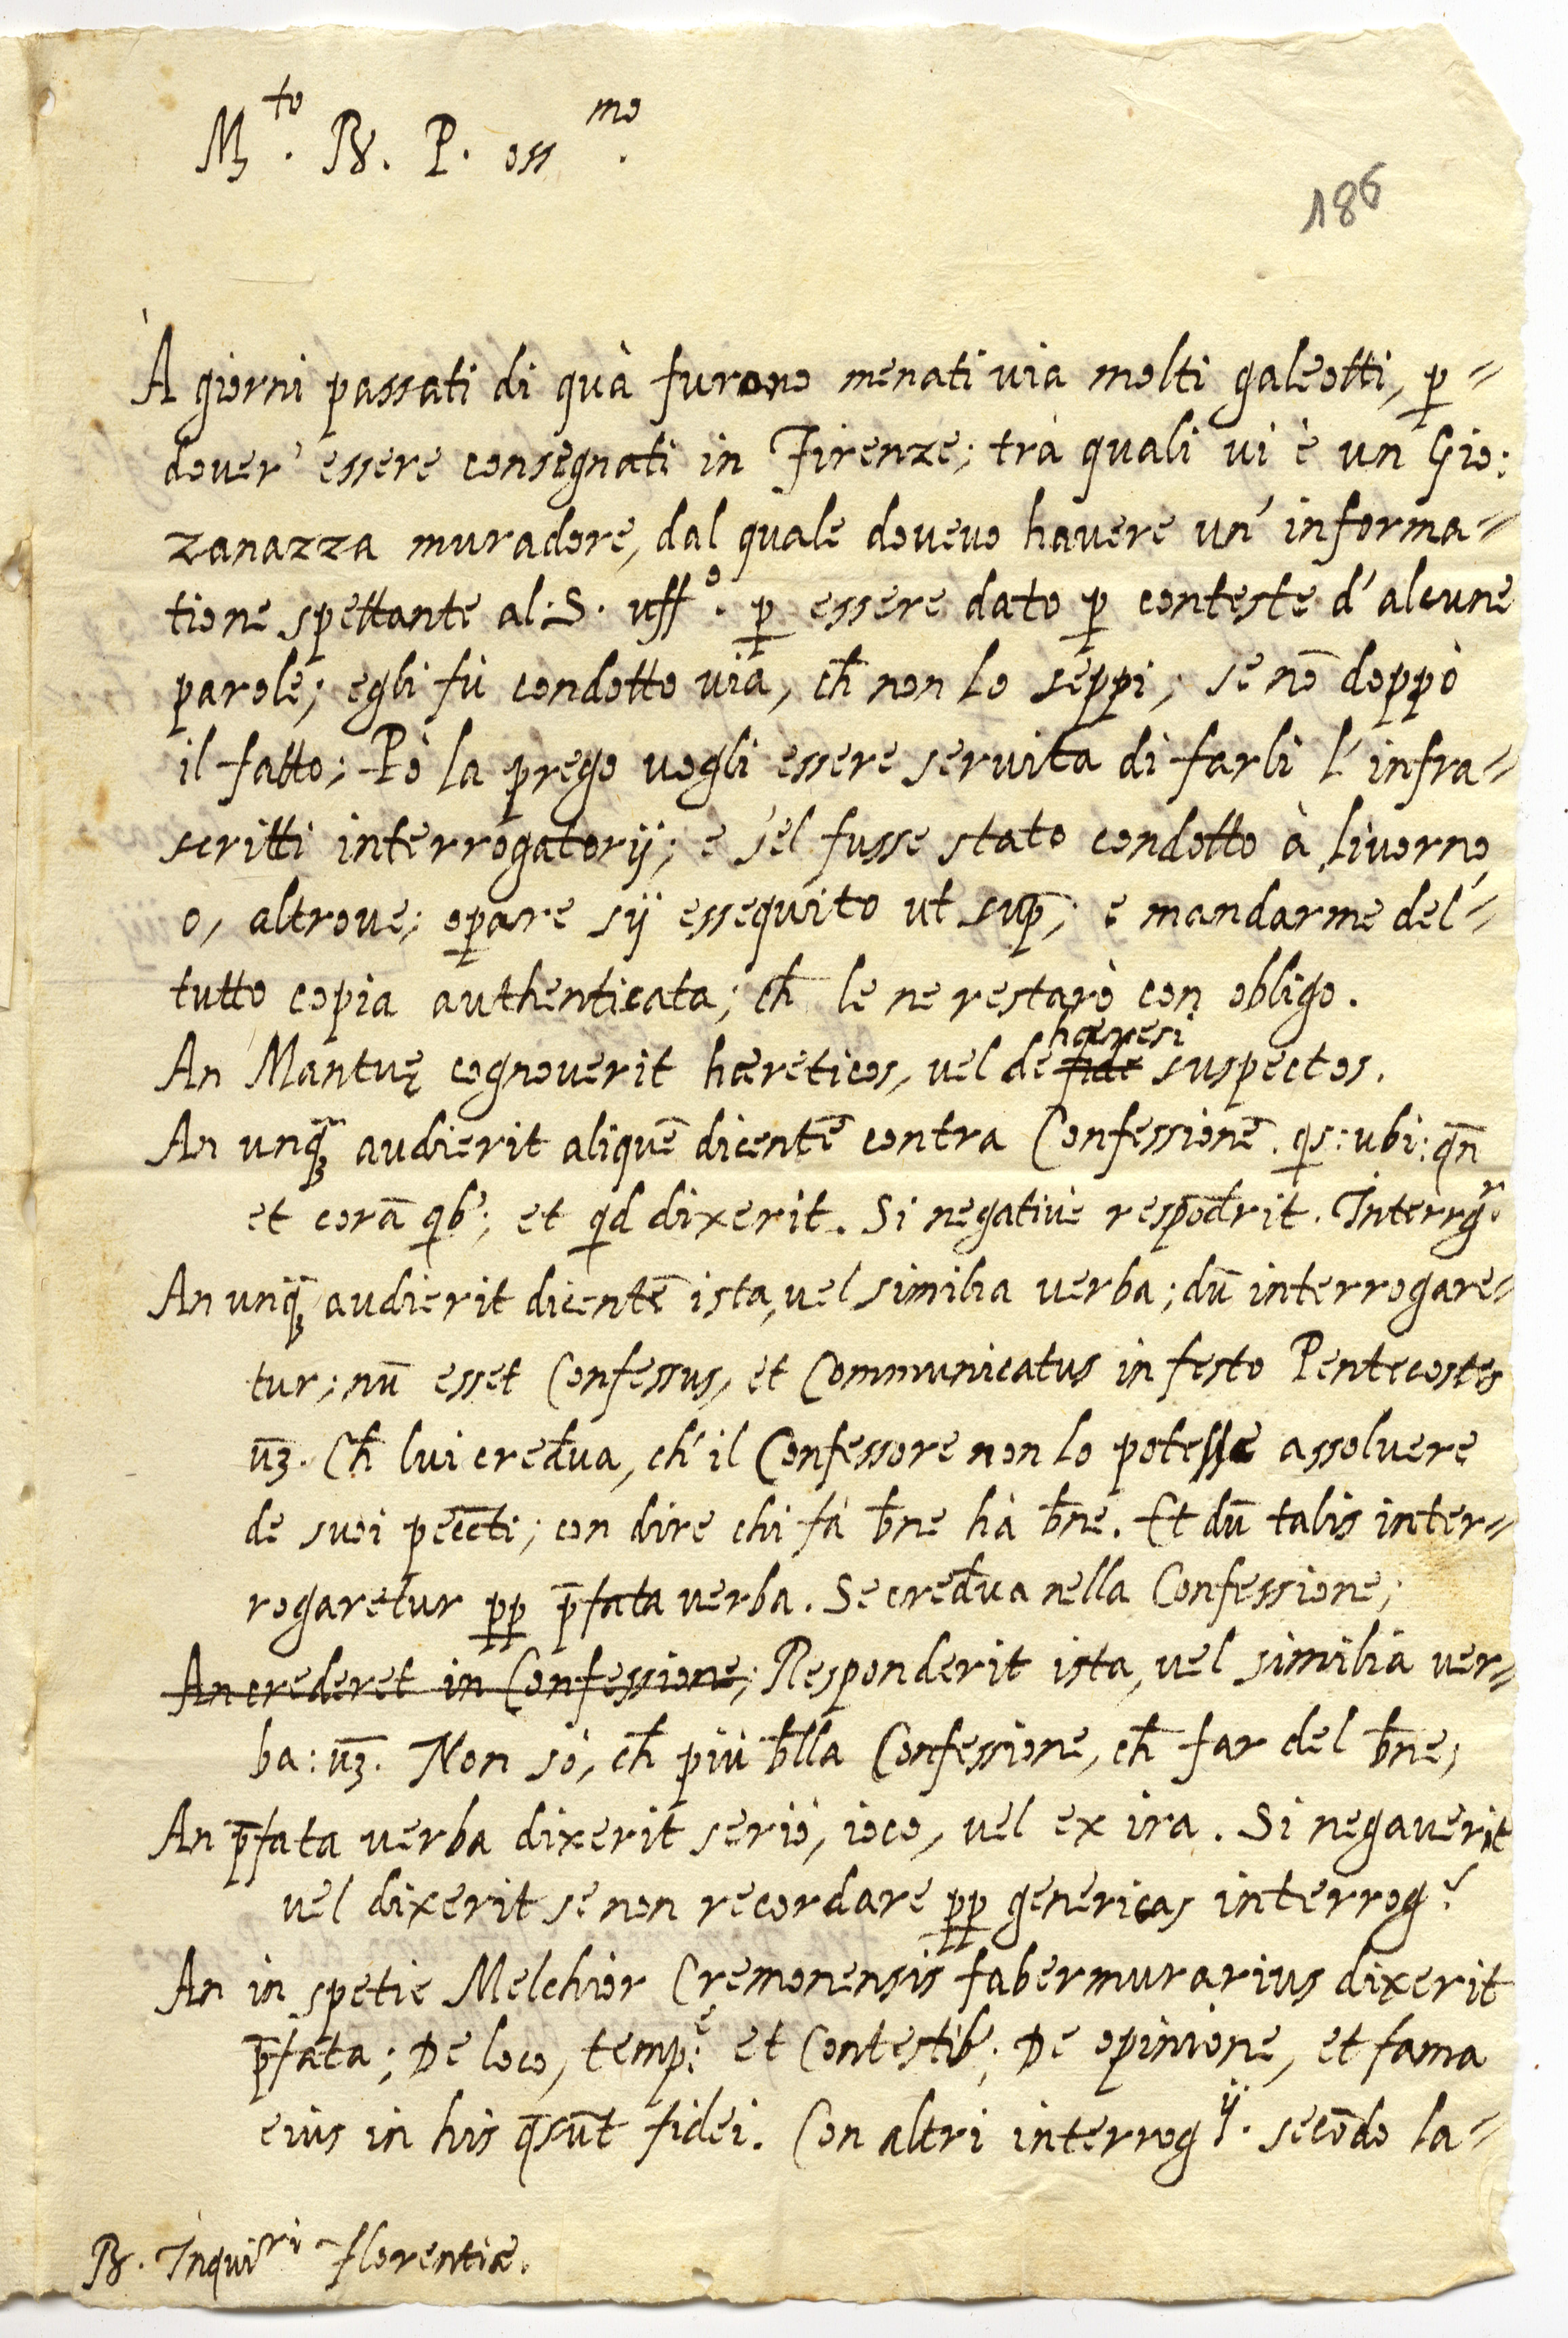 M.to R. P. oss.mo
186
À giorni passati di quà furono menati uia molti galeotti, p̱=
douer' essere consegnati in Firenze; trà quali ui è un Gio:
zanazza muradore, dal quale doueuo hauere un' informa=
tione spettante al: S. uff.o p̱ essere dato p̱ conteste d'alcune
parole; egli fù condotto uia, ch̄ non lo seppi, se nō doppò
il fatto; Pò la prego uogli essere seruita di farli l'infra=
scritti interrogatorij; e s'el fusse stato condotto à Liuorno
o, altroue; op̱are sij essequito ut sup̄; e mandarme del'=
tutto copia authenticata; ch̄ le ne restarò con obligo.
An Mantuę cognouerit hæreticos, uel de ~~fide~~ hæresi suspectos.
An unq̄ȝ audierit aliquē dicentē contra Confessionē. qs: ubi: qn̄
et corā qb'; et qd dixerit. Si negatiuè respōd̄rit. Interrg.r
An unq̄ȝ audierit dicentē ista, uel similia uerba; dū interrogare=
tur; nū esset Confessus, et Communicatus in festo Pentecostes
uȝ̄. Ch̄ lui cred̄ua, ch' il Confessore non lo potesse assoluere
de suoi pecc̄ti; con dire chi fà b̄ne hà b̄ne. Et dū talis inter=
rogaretur p̱p̱ p̄fata uerba. Se cred̄ua nella Confessione;
~~An crederet in Confessione;~~ Responderit ista, uel similia uer=
ba: uȝ̄. Non sò, ch̄ più b̄lla Confessione, ch̄ far del b̄ne;
An p̄fata uerba dixerit seriò, ioco, uel ex ira. Si negauerit
uel dixerit se non recordare p̱p̱ genericas interrog.s
An in spetie Melchior Cremonensis faber murarius dixerit
p̄fata; De loco, temp:e et Contestib'; De opinione, et fama
eius in his q̄ sūt fidei. Con altri interrog.ij secōdo la=
R. Inqui.ri Florentiæ.